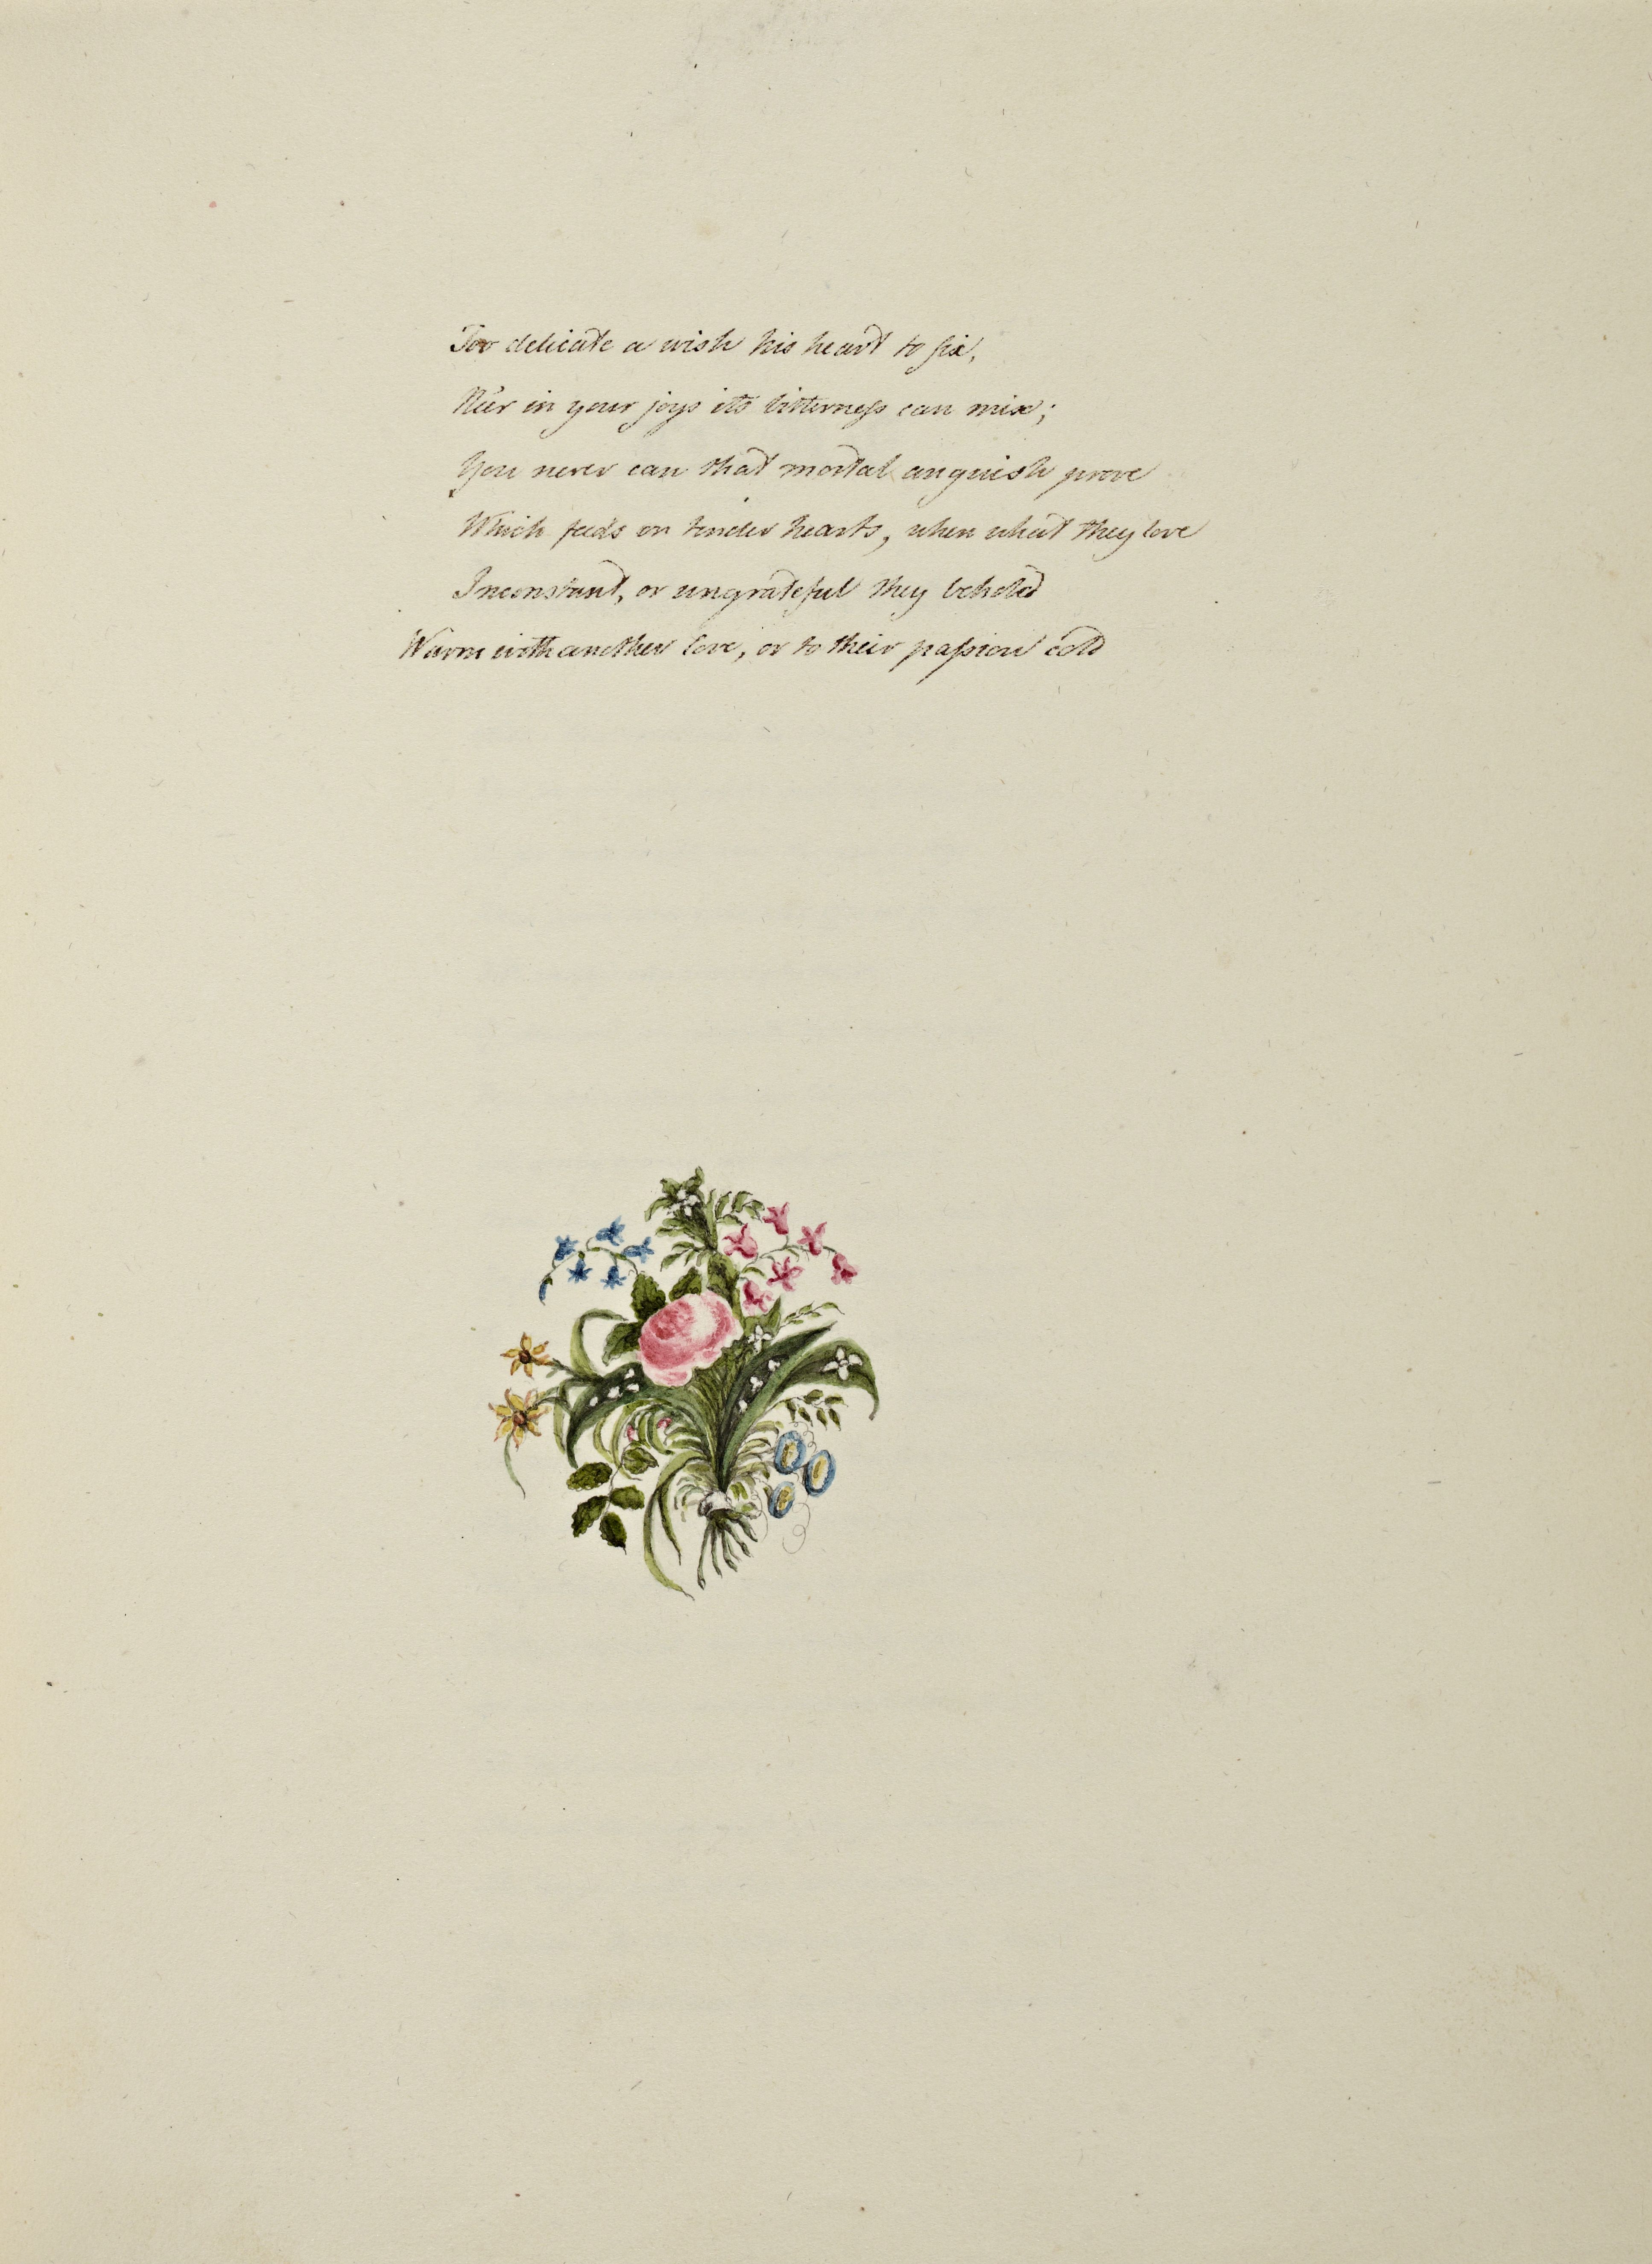 Too delicate a wish his heart to fix,
Ne'er in your joys its bitterness can mix;
You never can that mortal anguish prove
Which feeds on tender hearts, when what they love
Inconstant, or ungrateful they behold
Warm with another love, or to their passion cold